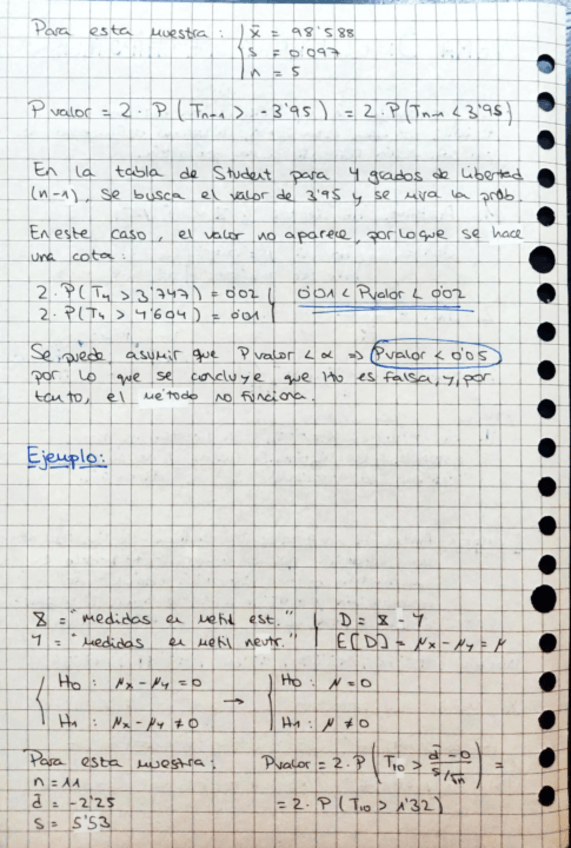 Para esta muestra : x̄ = 98'588
s = 0'097
n = 5
Pvalor = 2 · P ( Tn-1 > -3'95 ) = 2 · P ( Tn-1 < 3'95 )
En la tabla de Student para 4 grados de libertad
(n-1), se busca el valor de 3'95 y se mira la prob.
En este caso, el valor no aparece, por lo que se hace
una cota:
2 · P(T4 > 3'747) = 0'02 0'01 < Pvalor < 0'02
2 · P(T4 > 4'604) = 0'01
Se puede asumir que Pvalor < α => Pvalor < 0'05
por lo que se concluye que Ho es falsa, y, por
tanto, el método no funciona.
Ejemplo:
X = "medidas en metil est." D = X - Y
Y = "medidas en metil neutr." E[D] = μx - μy = μ
Ho : μx - μy = 0 → Ho : μ = 0
H1 : μx - μy ≠ 0 H1 : μ ≠ 0
Para esta muestra: Pvalor = 2 · P ( T10 > d̄ - 0 / s/√n ) =
n = 11
d̄ = -2'25 = 2 · P ( T10 > 1'32 )
s = 5'53